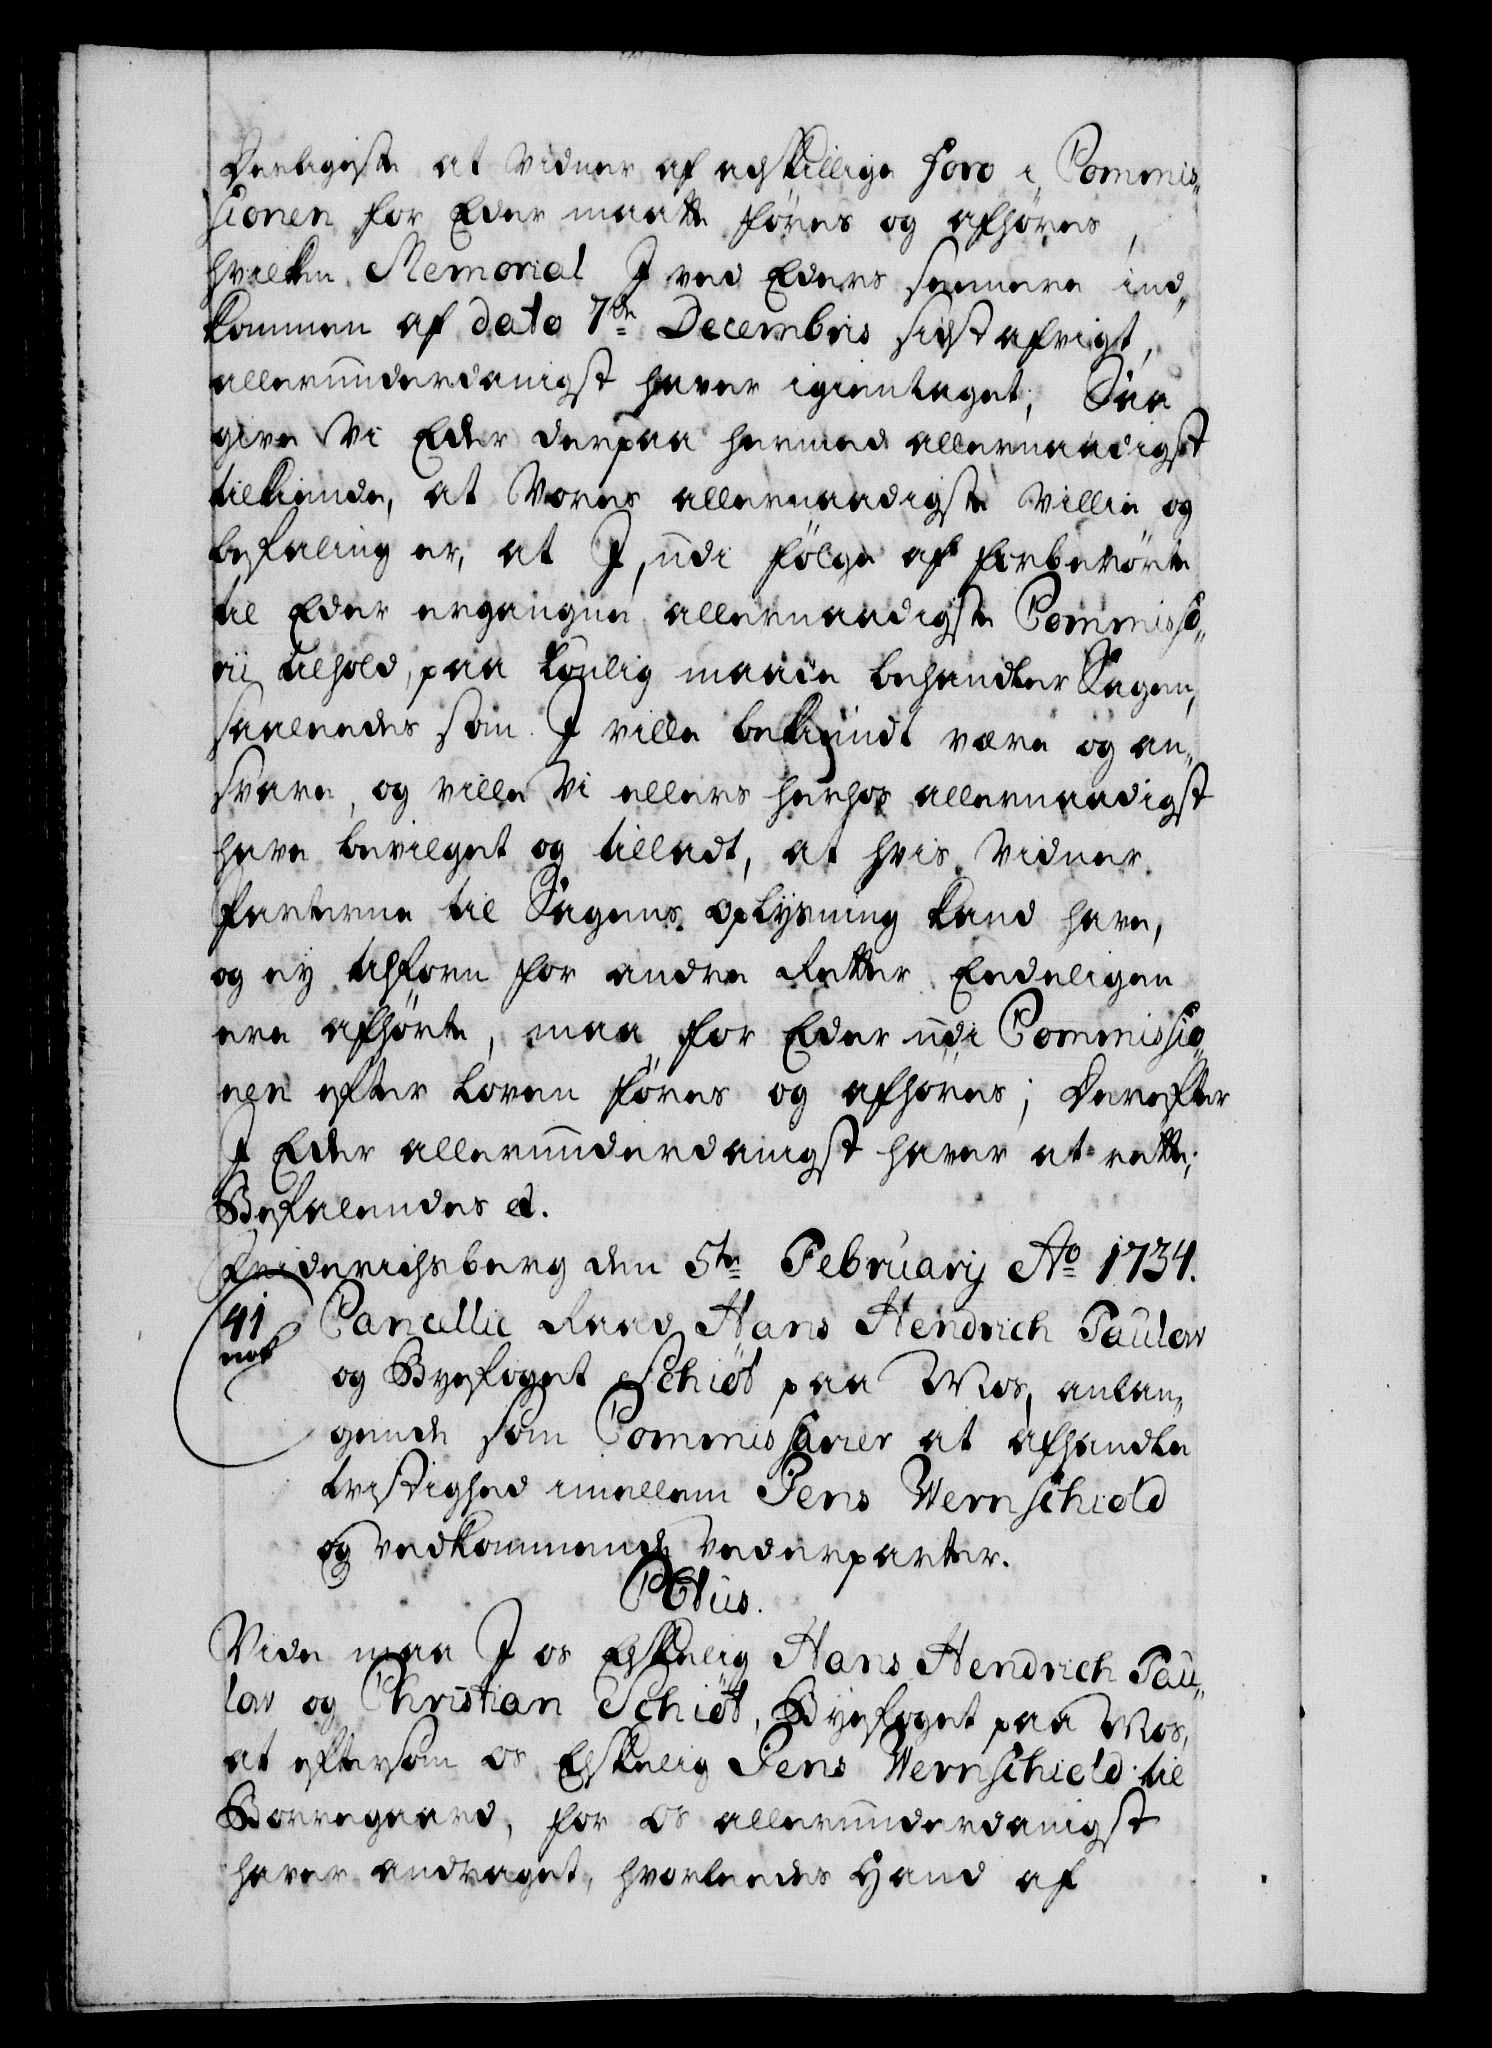 Deeligste at Vidner af adskillige foro i Commis-
sionen for Eder maatte føres og afhøres,
hvilken Memorial I ved Eders seenere ind-
kommen af dato 7de Decembris sidst afvigt,
allerunderdanigst haver igientaget; Saa
give Vi Eder derpaa hermed allernaadigst
tilkiende, at Vores allernaadigste Villie og
befaling er, at I, udi følge af forberørte
til Eder ergangne allernaadigste Commisso-
rii tilhold, paa lovlig maade behandler Sagen,
saaleedes som I ville bekiendt være og an-
svare, og ville Vi ellers herhos allernaadigst
have bevilget og tilladt, at hvis Vidner
Parterne til Sagens Oplysning kand have,
og ey tilforn for andre Retter Endeligen
ere afhørte, maa for Eder udi Commissio-
nen efter Loven føres og afhøres; Derefter
I Eder allerunderdanigst haver at rette;
Befalendes et.
Friderichsberg den 5te February Ao 1734.
41 Cancellie Raad Hans Hendrich Paulov
not
og Byefoget Schiøt paa Mos, anlan-
gende som Commissarier at afhandle
tvistighed imellem Jens Wernschiold
og vedkommende Vederparter.
CVItus.
Vide maa I os Elskelig Hans Hendrich Pau-
lov og Christian Schiøt, Byefoget paa Mos,
at eftersom os Elskelig Jens Wernschield til
Borregaard, for os allerunderdanigst
haver andraget, hvorleedes Hand af